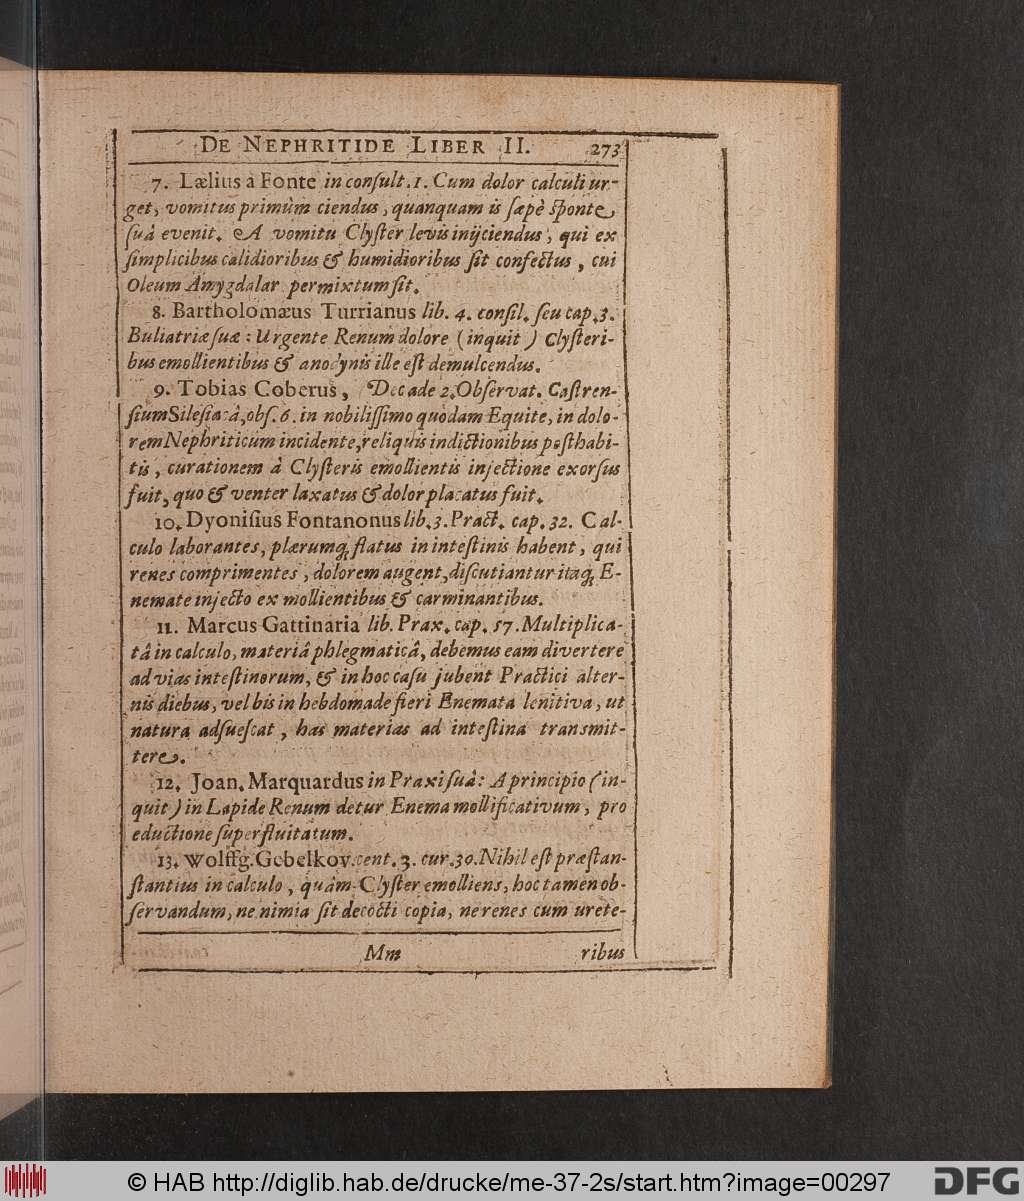 DE NEPHRITIDE LIBER II. 273
7. Lælius à Fonte in conſult. 1. Cum dolor calculi ur-
get, vomitus primùm ciendus, quanquam is ſæpè ſponte
ſuâ evenit. A vomitu Clyſter levis inijciendus, qui ex
ſimplicibus calidioribus & humidioribus ſit confectus, cui
Oleum Amygdalar permixtum ſit.
8. Bartholomæus Turrianus lib. 4. conſil. ſeu cap. 3.
Buliatriæ ſuæ: Urgente Renum dolore (inquit) Clyſteri-
bus emollientibus & anodynis ille eſt demulcendus.
9. Tobias Coberus, Decade 2. Obſervat. Caſtren-
ſium Sileſiacâ, obſ. 6. in nobiliſſimo quodam Equite, in dolo-
rem Nephriticum incidente, reliquis indictionibus poſthabi-
tis, curationem à Clyſteris emollientis injectione exorſus
fuit, quo & venter laxatus & dolor placatus fuit.
10. Dyoniſius Fontanonus lib. 3. Pract. cap. 32. Cal-
culo laborantes, plærumq́; flatus in inteſtinis habent, qui
renes comprimentes, dolorem augent, diſcutiantur itaq́; E-
nemate injecto ex mollientibus & carminantibus.
11. Marcus Gattinaria lib. Prax. cap. 57. Multiplica-
tâ in calculo, materiâ phlegmaticâ, debemus eam divertere
ad vias inteſtinorum, & in hoc caſu jubent Practici alter-
nis diebus, vel bis in hebdomade fieri Enemata lenitiva, ut
natura adſueſcat, has materias ad inteſtina transmit-
tere.
12. Joan. Marquardus in Praxi ſuâ: A principio (in-
quit) in Lapide Renum detur Enema mollificativum, pro
eductione ſuperfluitatum.
13. Wolffg. Gebelkov. cent. 3. cur. 30. Nihil eſt præſtan-
ſtantius in calculo, quàm Clyſter emolliens, hoc tamen ob-
ſervandum, ne nimia ſit decocti copia, ne renes cum urete-
Mm ribus
© HAB http://diglib.hab.de/drucke/me-37-2s/start.htm?image=00297 DFG